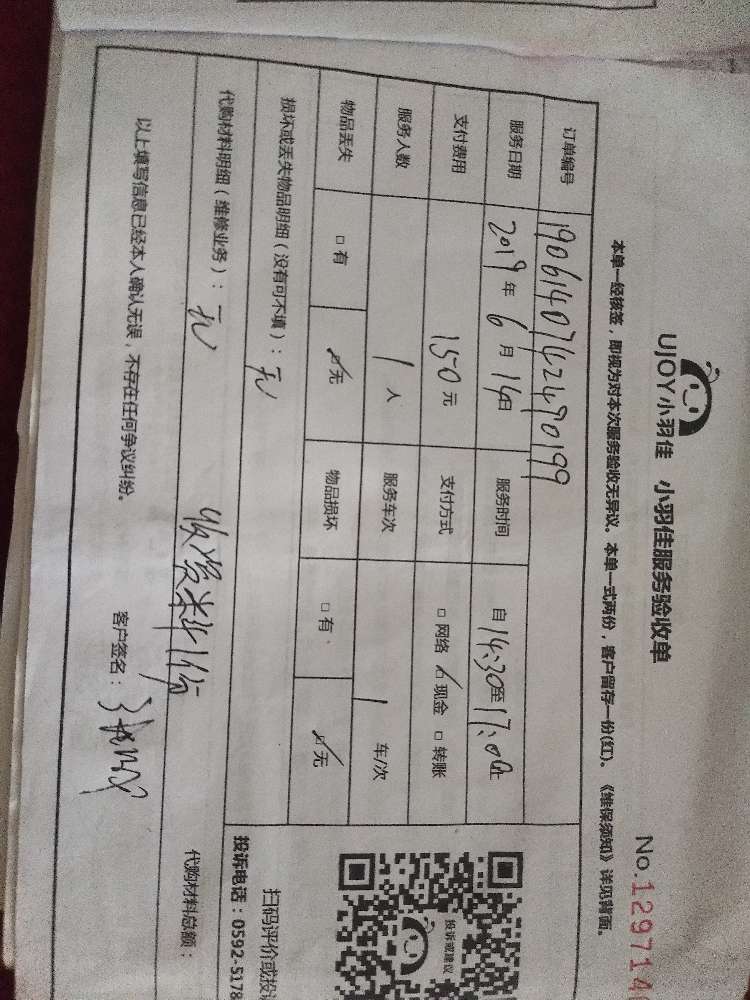 UJOY小羽佳 小羽佳服务验收单
No.129714
本单一经核签，即视为对本次服务验收无异议。本单一式两份，客户留存一份(红)。《维保须知》详见背面。
订单编号 1906140742490199
服务日期 2019年6月14日 服务时间 自14:30至17:00止
支付费用 150元 支付方式 □网络 ☑现金 □转账
服务人数 1人 服务车次 1车/次
物品丢失 □有 ☑无 物品损坏 □有 ☑无
损坏或丢失物品明细（没有可不填）：无
代购材料明细（维修业务）：无
代购材料总额：
以上填写信息已经本人确认无误，不存在任何争议纠纷。
客户签名：
投诉或建议
扫码评价或投
投诉电话：0592-5178